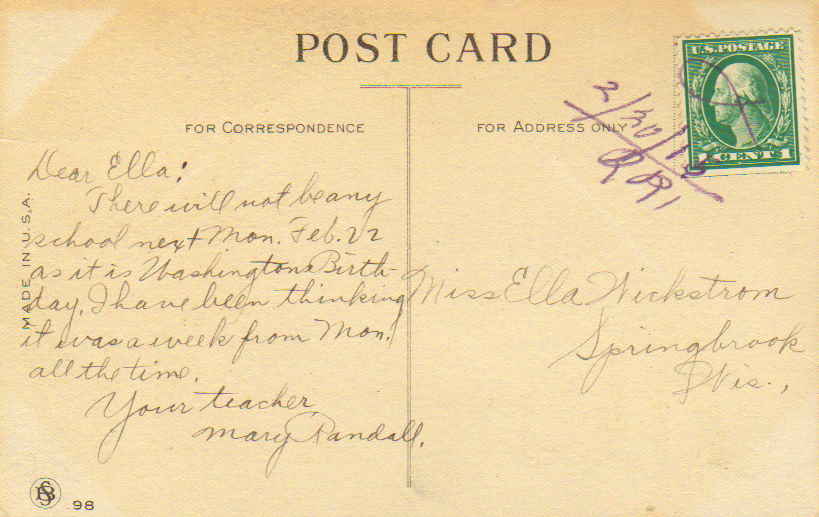 POST CARD
U.S. POSTAGE
1 CENT 1
FOR CORRESPONDENCE
FOR ADDRESS ONLY
2/20/15
MADE IN U.S.A.
Dear Ella:
There will not be any
school next Mon. Feb. 22
as it is Washingtons Birth-
day. I have been thinking
it was a week from Mon.
all the time.
Your teacher
Mary Randall.
Miss Ella Wickstrom
Springbrook
Wis.,
98